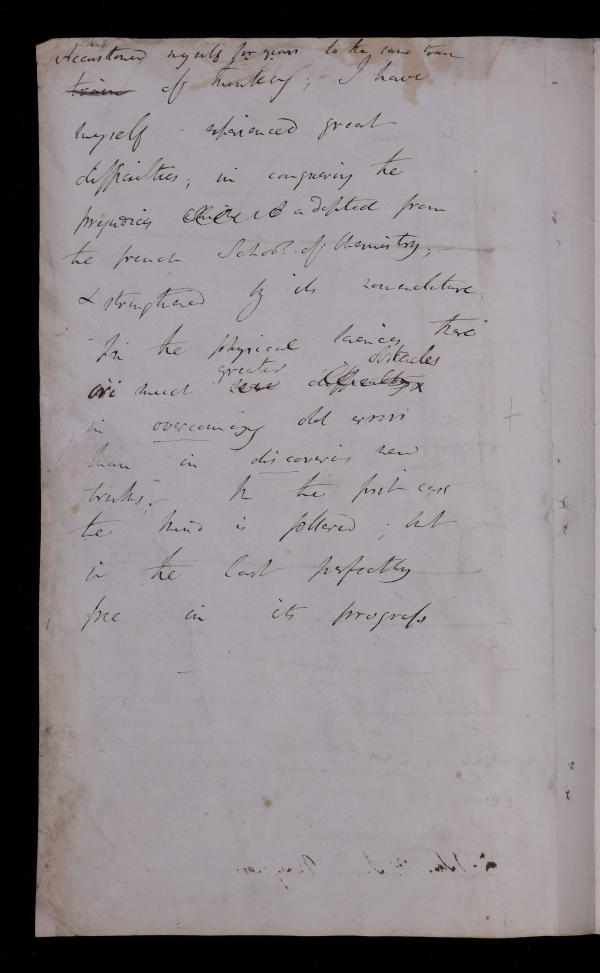 Accustomed myself for years to the same train
train of thinking; I have
myself experienced great
difficulties; in conquering the
prejudices adopted from
the french School of Chemistry; —
& strengthened by its nomenclature.
In the physical sciences there
are much greater obstacles
in overcoming old errors
than in discovering new
truths; — In the first case
the mind is fettered; but
in the last perfectly
free in its progress